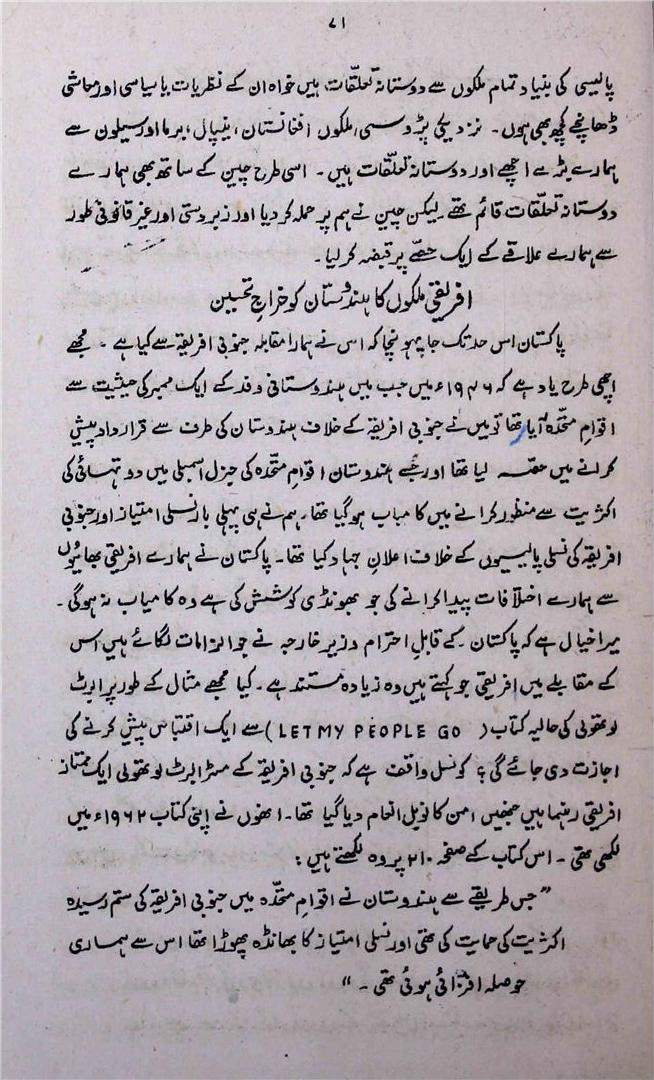 ۷۱
پالیسی کی بنیاد تمام ملکوں سے دوستانہ تعلّقات ہیں خواہ ان کے نظریات یا سیاسی اور معاشی
ڈھانچے کچھ بھی ہوں۔ نزدیکی پڑوسی ملکوں افغانستان، نیپال، برما اور سیلون سے
ہمارے بڑے اچھے اور دوستانہ تعلّقات ہیں۔ اسی طرح چین کے ساتھ بھی ہمارے
دوستانہ تعلّقات قائم تھے لیکن چین نے ہم پر حملہ کر دیا اور زبردستی اور غیر قانونی طور
سے ہمارے علاقے کے ایک حصّے پر قبضہ کر لیا۔
افریقی ملکوں کا ہندوستان کو خراجِ تحسین
پاکستان اس حد تک جا پہونچا کہ اس نے ہمارا مقابلہ جنوبی افریقہ سے کیا ہے۔ مجھے
اچھی طرح یاد ہے کہ ۱۹۴۶ء میں جب میں ہندوستانی وفد کے ایک ممبر کی حیثیت سے
اقوامِ متحّدہ آیا تھا تو میں نے جنوبی افریقہ کے خلاف ہندوستان کی طرف سے قرارداد پیش
کرانے میں حصّہ لیا تھا اور جسے ہندوستان اقوامِ متحّدہ کی جنرل اسمبلی میں دو تہائی کی
اکثریت سے منظور کرانے میں کامیاب ہو گیا تھا۔ ہم نے ہی پہلی بار نسلی امتیاز اور جنوبی
افریقہ کی نسلی پالیسیوں کے خلاف اعلانِ جہاد کیا تھا۔ پاکستان نے ہمارے افریقی بھائیوں
سے ہمارے اختلافات پیدا کرانے کی جو بھونڈی کوشش کی ہے وہ کامیاب نہ ہوگی۔
میرا خیال ہے کہ پاکستان کے قابلِ احترام وزیر خارجہ نے جو الزامات لگائے ہیں اس
کے مقابلے میں افریقی جو کہتے ہیں وہ زیادہ مستند ہے۔ کیا مجھے مثال کے طور پر البرٹ
لوتھولی کی حالیہ کتاب (LET MY PEOPLE GO) سے ایک اقتباس پیش کرنے کی
اجازت دی جائے گی؟ کونسل واقف ہے کہ جنوبی افریقہ کے مسٹر البرٹ لوتھولی ایک ممتاز
افریقی رہنما ہیں جنھیں امن کا نوبل انعام دیا گیا تھا۔ انھوں نے اپنی کتاب ۱۹۶۲ء میں
لکھی تھی۔ اس کتاب کے صفحہ ۲۱۰ پر وہ لکھتے ہیں:
”جس طریقے سے ہندوستان نے اقوامِ متحّدہ میں جنوبی افریقہ کی ستم رسیدہ
اکثریت کی حمایت کی تھی اور نسلی امتیاز کا بھانڈہ پھوڑا تھا اس سے ہماری
حوصلہ افزائی ہوئی تھی۔“